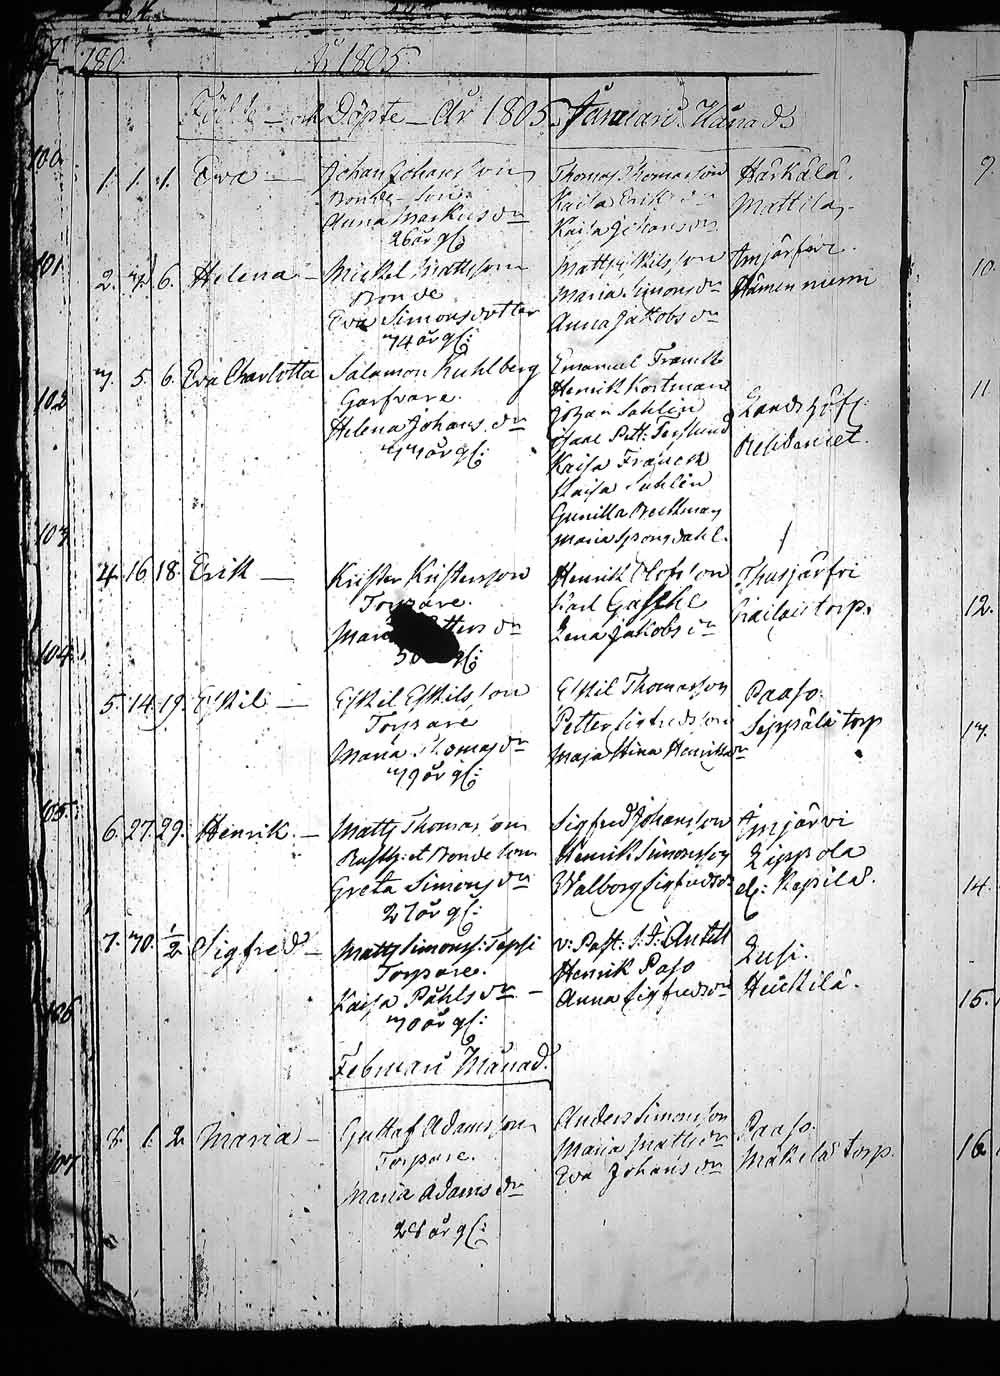 180. År 1805
Födde och Döpte År 1805. Januari Månad
100.
1. 1. 1. Eva — Johan Johansson Thomas Thomasson Harkala.
Bonde son Kaisa Eriks dr Mattila
Anna Markus dr Kaisa Johans dr
26 år gl:
101
2. 3. 6. Helena — Mickel Mattsson Matts Nilsson Imjärfvi
Bonde Maria Simons dr Hämen niemi
Eva Simonsdotter Anna Jakobs dr
34 år gl:
102
3. 5. 6. Eva Charlotta Salamon Kuhlberg Emanuel Franck
Garfvare. Henrik Kortman
Helena Johans dr Johan Sahlin Landshöfd:
33 år gl: Isaac Pett: Forslund Residencet.
Kaisa Franck
Kaisa Sahlin
Gunilla Beckman
Maria Sprongdahl.
103
4. 16. 18. Erik — Krister Kristersson Henrik Olofsson Thusjärfvi
Torpare. Karl torp.
Maria dr Lena Jakobs dr
gl:
104
5. 14. 19. Eskil — Eskil Eskilsson Eskil Thomasson Paaso.
Torpare Petter Sigfredsson Seppälä torp
Maria Thomas dr Maja Stina Henriks dr
39 år gl:
105.
6. 27. 29. Henrik. — Matts Thomasson Sigfred Johansson Imjärvi
Rusth: et Bonde son Henrik Simonsson Zippola
Greta Simons dr Walborg Sigfreds dr el: Rapila.
27 år gl:
7. 30. 1/2 Sigfred — Matts Simonss: Seppi v: Past: J. F. Antell Lusi.
Torpare. Henrik Paso Heickilä.
Kaisa Påhls dr — Anna Sigfreds dr
30 år gl:
106
Februari Månad.
8. 1. 2. Maria — Gustaf Adamsson Anders Simonsson Paaso.
Torpare. Maria Matts dr Mäkelä torp.
Maria Adams dr Eva Johans dr
28 år gl:
107
9.
10.
11
12.
13.
14.
15.
16.